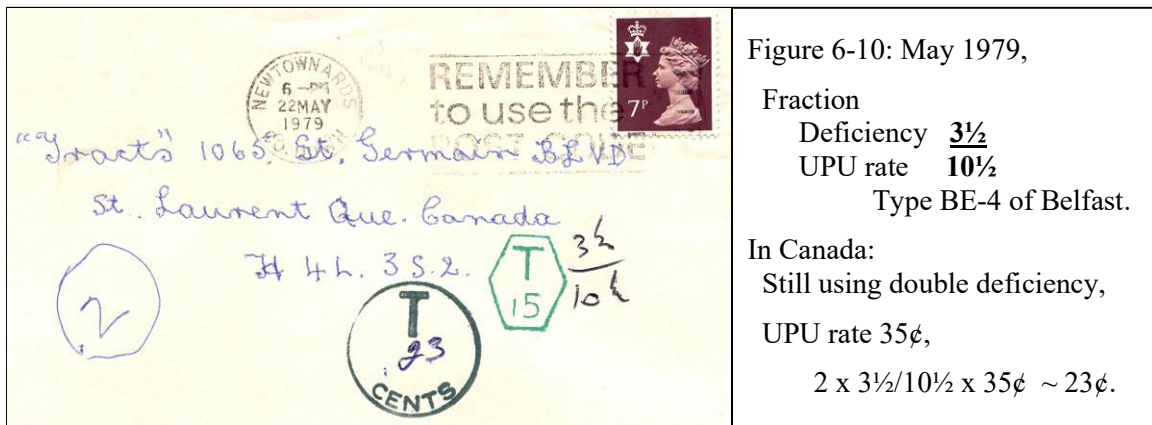 NEWTOWNARDS
6-PM
22MAY
1979
CO. DOWN
REMEMBER
to use the
POST CODE
7P
"Tracts" 1065, St. Germain BLVD
St. Laurent Que. Canada
H 4 L. 3 S. 2.
2
T
15
3½
10½
T
.23
CENTS
Figure 6-10: May 1979,
Fraction
Deficiency 3½
UPU rate 10½
Type BE-4 of Belfast.
In Canada:
Still using double deficiency,
UPU rate 35¢,
2 x 3½/10½ x 35¢ ~ 23¢.